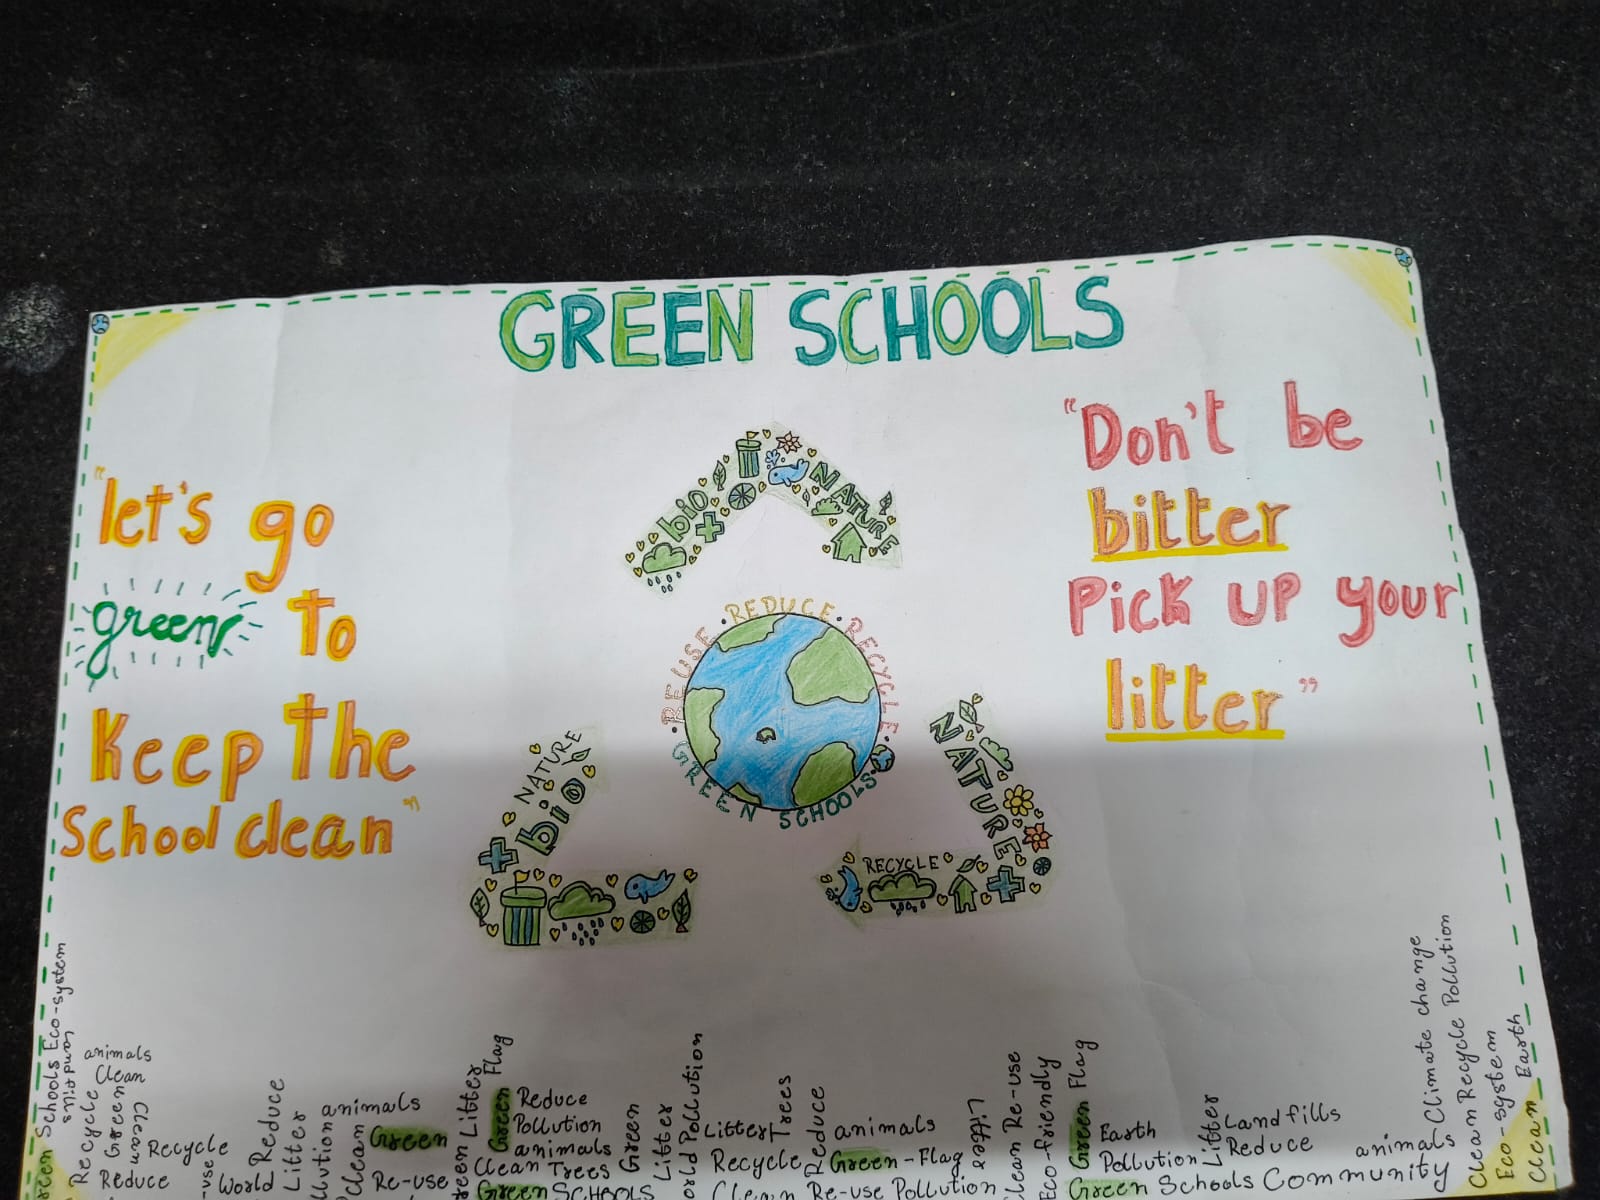 GREEN SCHOOLS
"let's go
green to
Keep the
School clean"
"Don't be
bitter
Pick up your
litter"
bio
NATURE
REUSE • REDUCE • RECYCLE •
GREEN SCHOOLS
NATURE
bio
NATURE
RECYCLE
Schools Eco-system
Landfills
animals
Clean
Recycle
Green
Clean
Recycle
Reduce
World
Reduce
Litter
animals
Clean
Green
Re-use
Litter
Green Flag
Reduce
Pollution
animals
Clean Trees
Green SCHOOLS
Green
Litter
Pollution
Litter
Trees
Recycle
Reduce
animals
Green-Flag
Clean Re-use Pollution
Litter
Clean Re-use
Eco-friendly
Green Flag
Earth
Pollution
Litter
Landfills
Reduce
animals
Green Schools Community
Climate change
Clean Recycle Pollution
Eco-system
Clean Earth